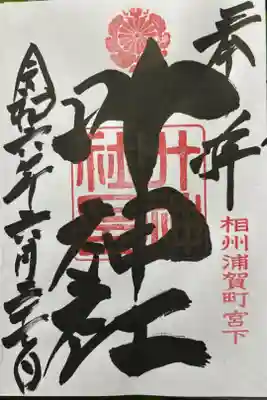 奉拝
相州浦賀町宮下
叶神社
令和六年六月二十一日